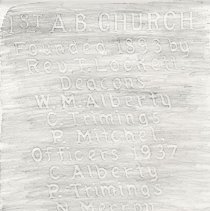 1ST A.B. CHURCH
Founded 1893 by
Rev. T. Lockett
Deacons
W. M. Alberty
C. Trimings
P. Mitchel
Officers 1937
C. Alberty
P. Trimings